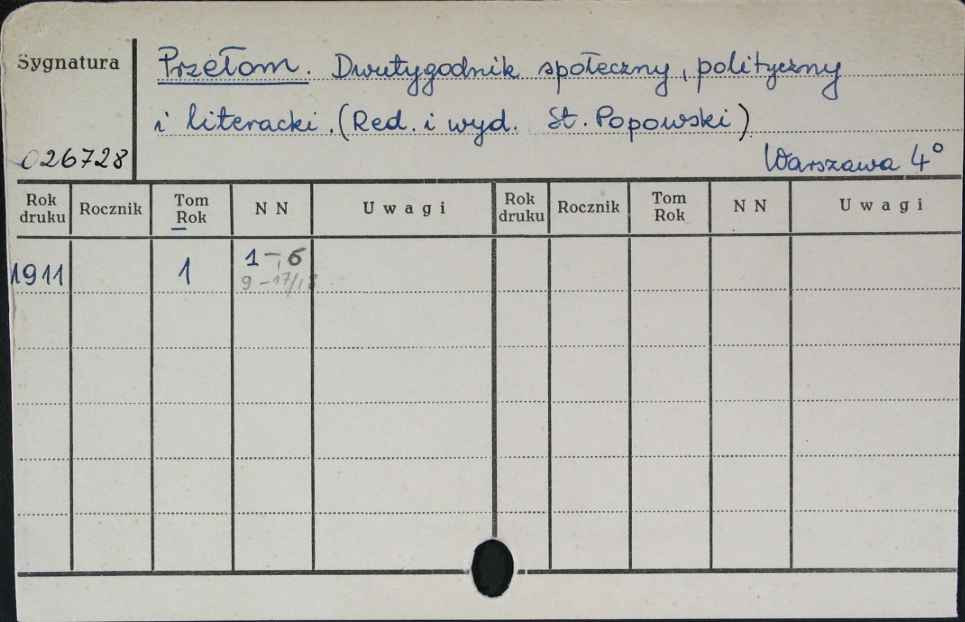 Sygnatura
Przełom. Dwutygodnik społeczny, polityczny
i literacki. (Red. i wyd. St. Popowski)
026728
Warszawa 4°
Rok druku Rocznik Tom Rok N N Uwagi Rok druku Rocznik Tom Rok N N Uwagi
1911 1 1-6
9-17/18